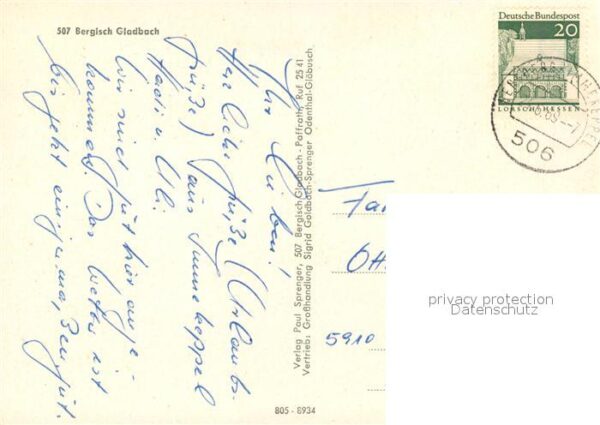 507 Bergisch Gladbach
Ihr Lieben!
Herzliche Grüße (Urlaubs-
grüße) aus Immekeppel
Hadi u. Uli.
Wir sind gut hier ange-
kommen. Das Wetter ist
bis jetzt einigermaßen gut.
Verlag Paul Sprenger, 507 Bergisch Gladbach - Paffrath, Ruf 25 41
Vertrieb: Großhandlung Sigrid Goldbach-Sprenger Odenthal-Glöbusch
805 - 8934
Deutsche Bundespost
20
LORSCH/HESSEN
506
Fa
5910
privacy protection
Datenschutz